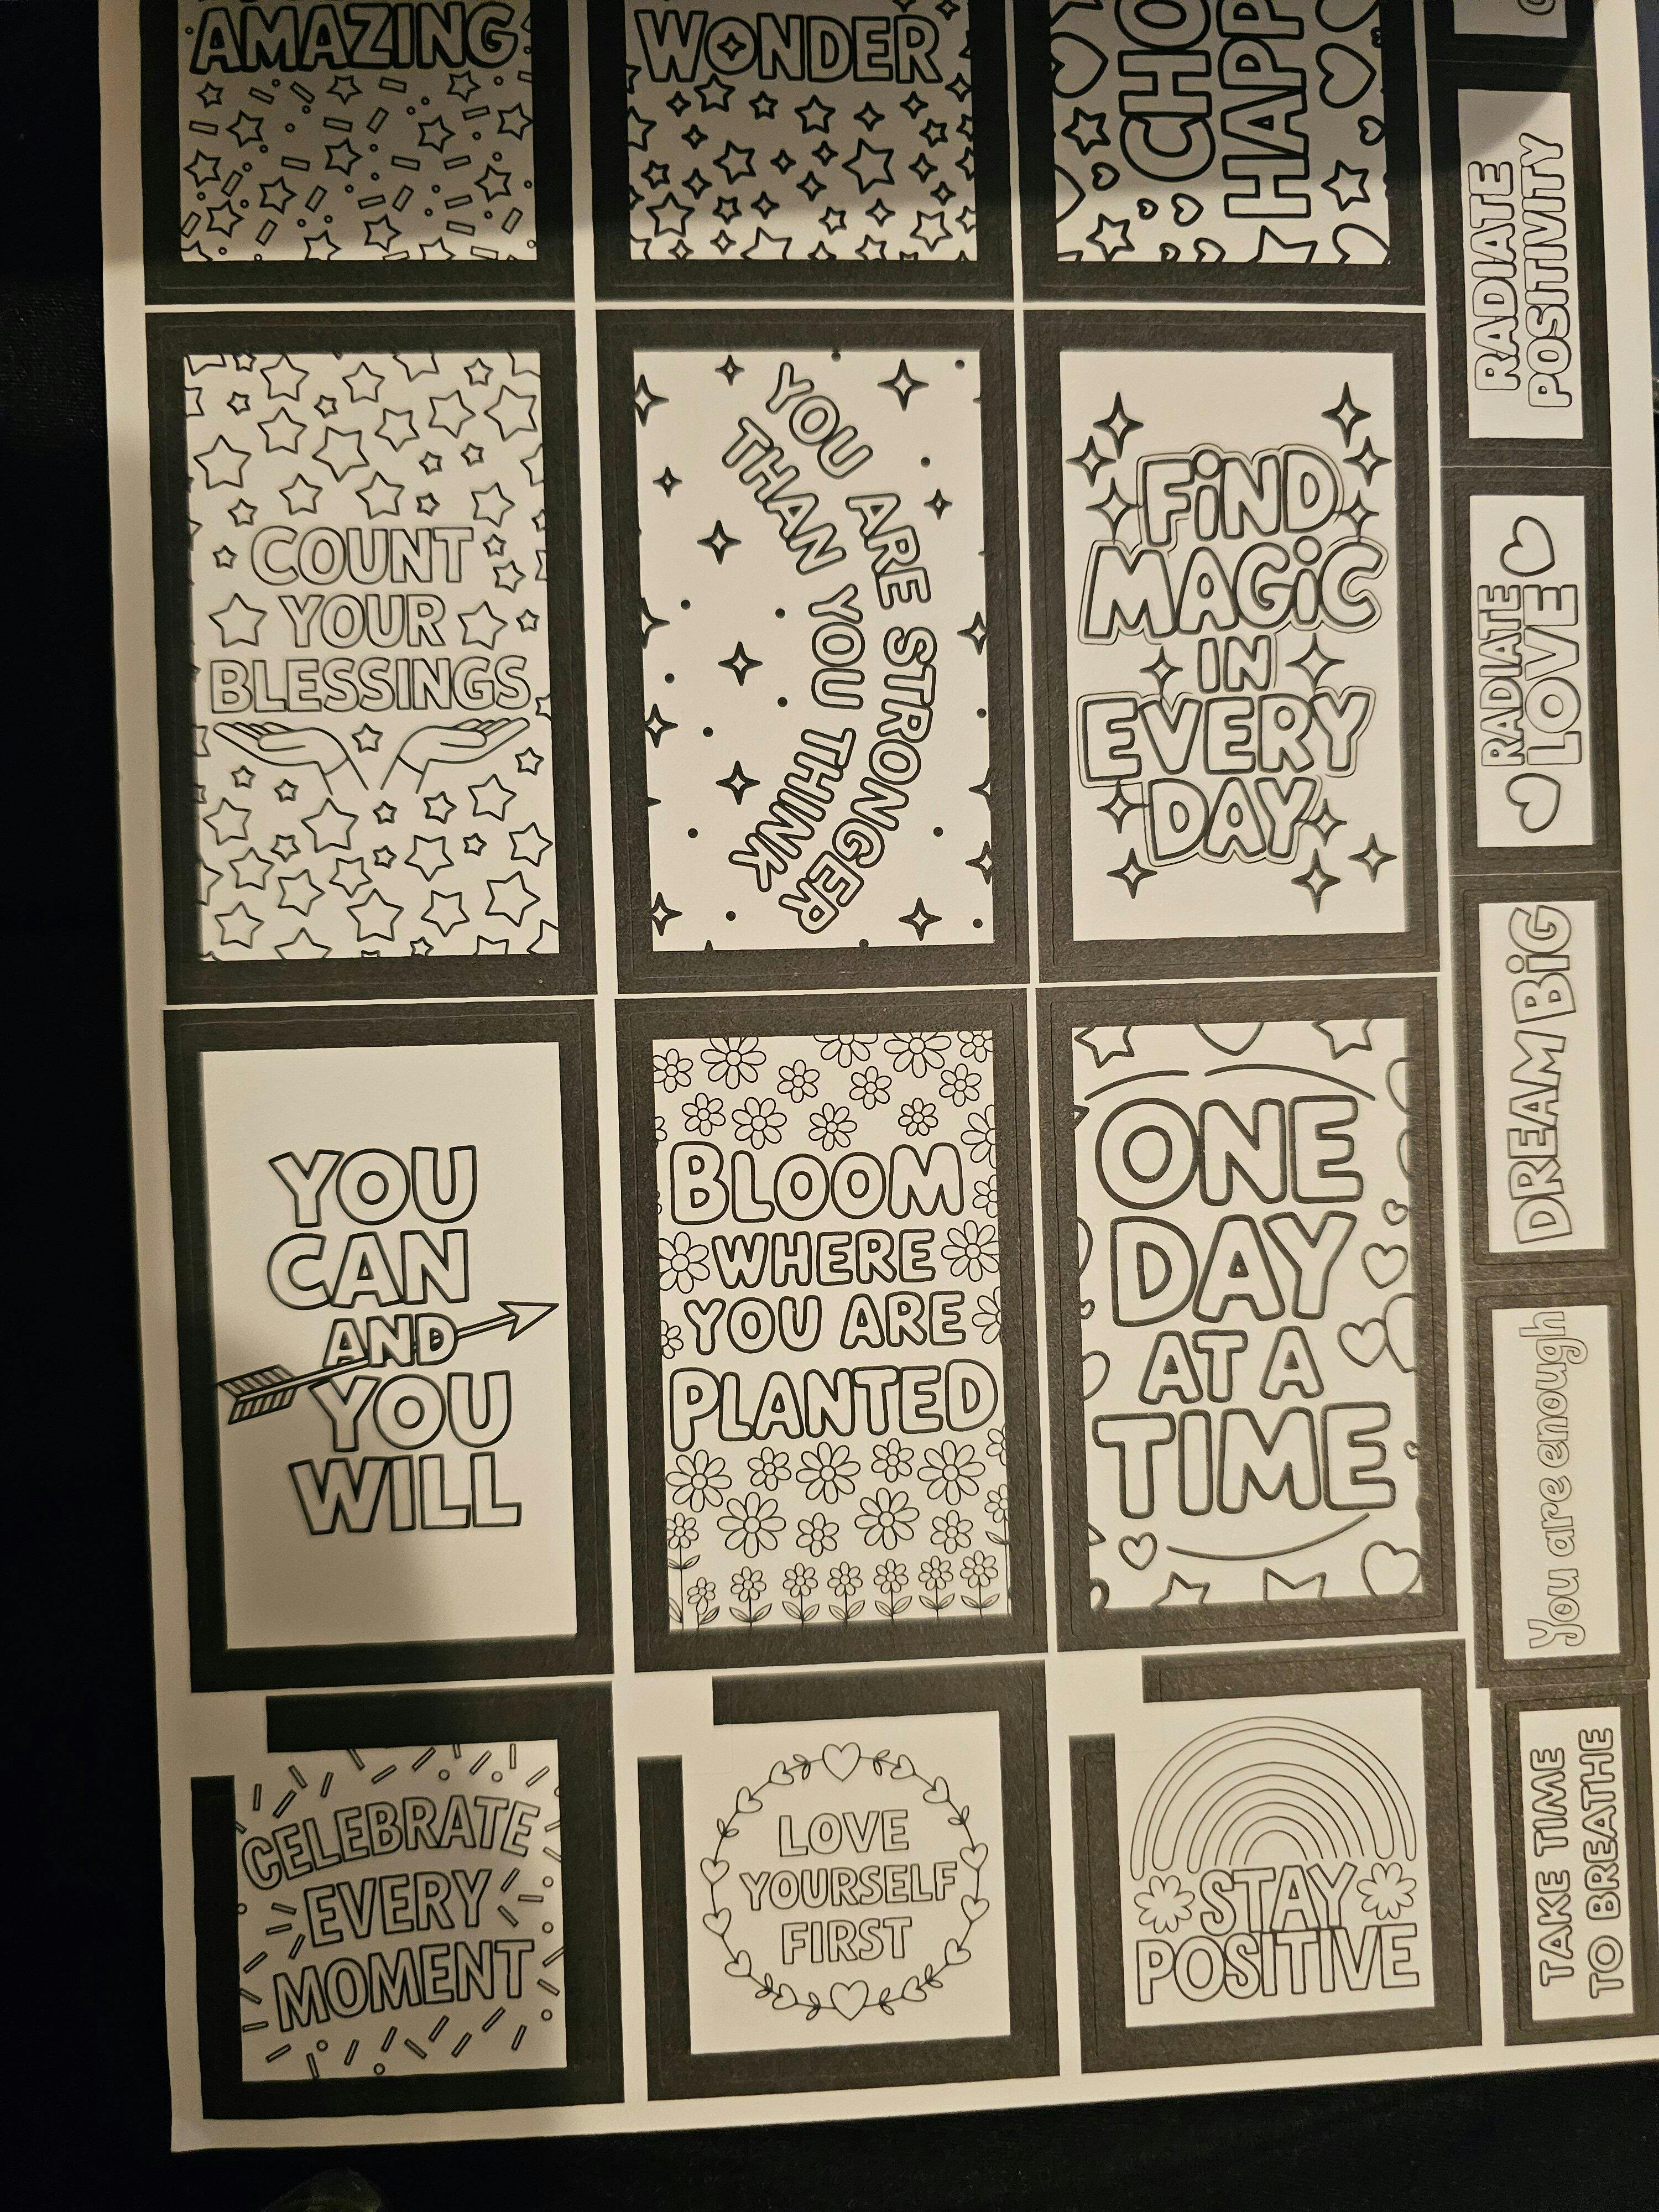 AMAZING
WONDER
CHO
HAPP
COUNT
YOUR
BLESSINGS
YOU ARE STRONGER
THAN YOU THINK
FIND
MAGIC
IN
EVERY
DAY
YOU
CAN
AND
YOU
WILL
BLOOM
WHERE
YOU ARE
PLANTED
ONE
DAY
AT A
TIME
CELEBRATE
EVERY
MOMENT
LOVE
YOURSELF
FIRST
STAY
POSITIVE
RADIATE
POSITIVITY
RADIATE
LOVE
DREAM BIG
You are enough
TAKE TIME
TO BREATHE